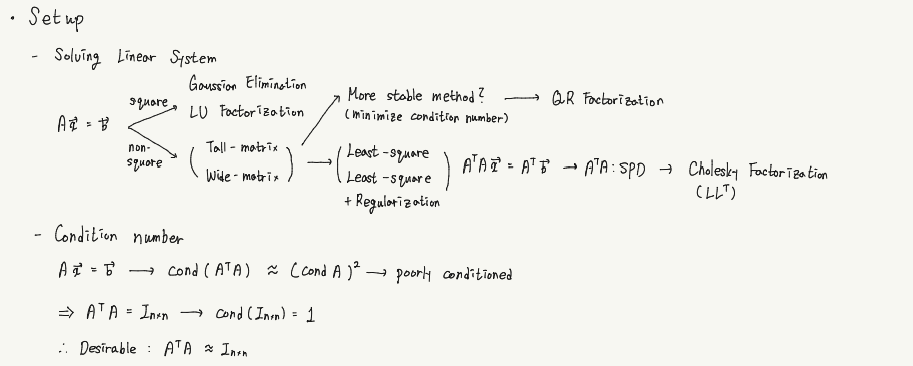 • Setup
- Solving Linear System
Gaussian Elimination
square
LU Factorization
More stable method? → QR Factorization
(minimize condition number)
A𝑥⃗ = b⃗
non-
square
Tall-matrix
Wide-matrix
Least-square
Least-square
+ Regularization
AᵀA𝑥⃗ = Aᵀb⃗ → AᵀA : SPD → Cholesky Factorization
(LLᵀ)
- Condition number
A𝑥⃗ = b⃗ → cond(AᵀA) ≈ (cond A)² → poorly conditioned
⇒ AᵀA = Iₙₓₙ → cond(Iₙₓₙ) = 1
∴ Desirable : AᵀA ≈ Iₙₓₙ